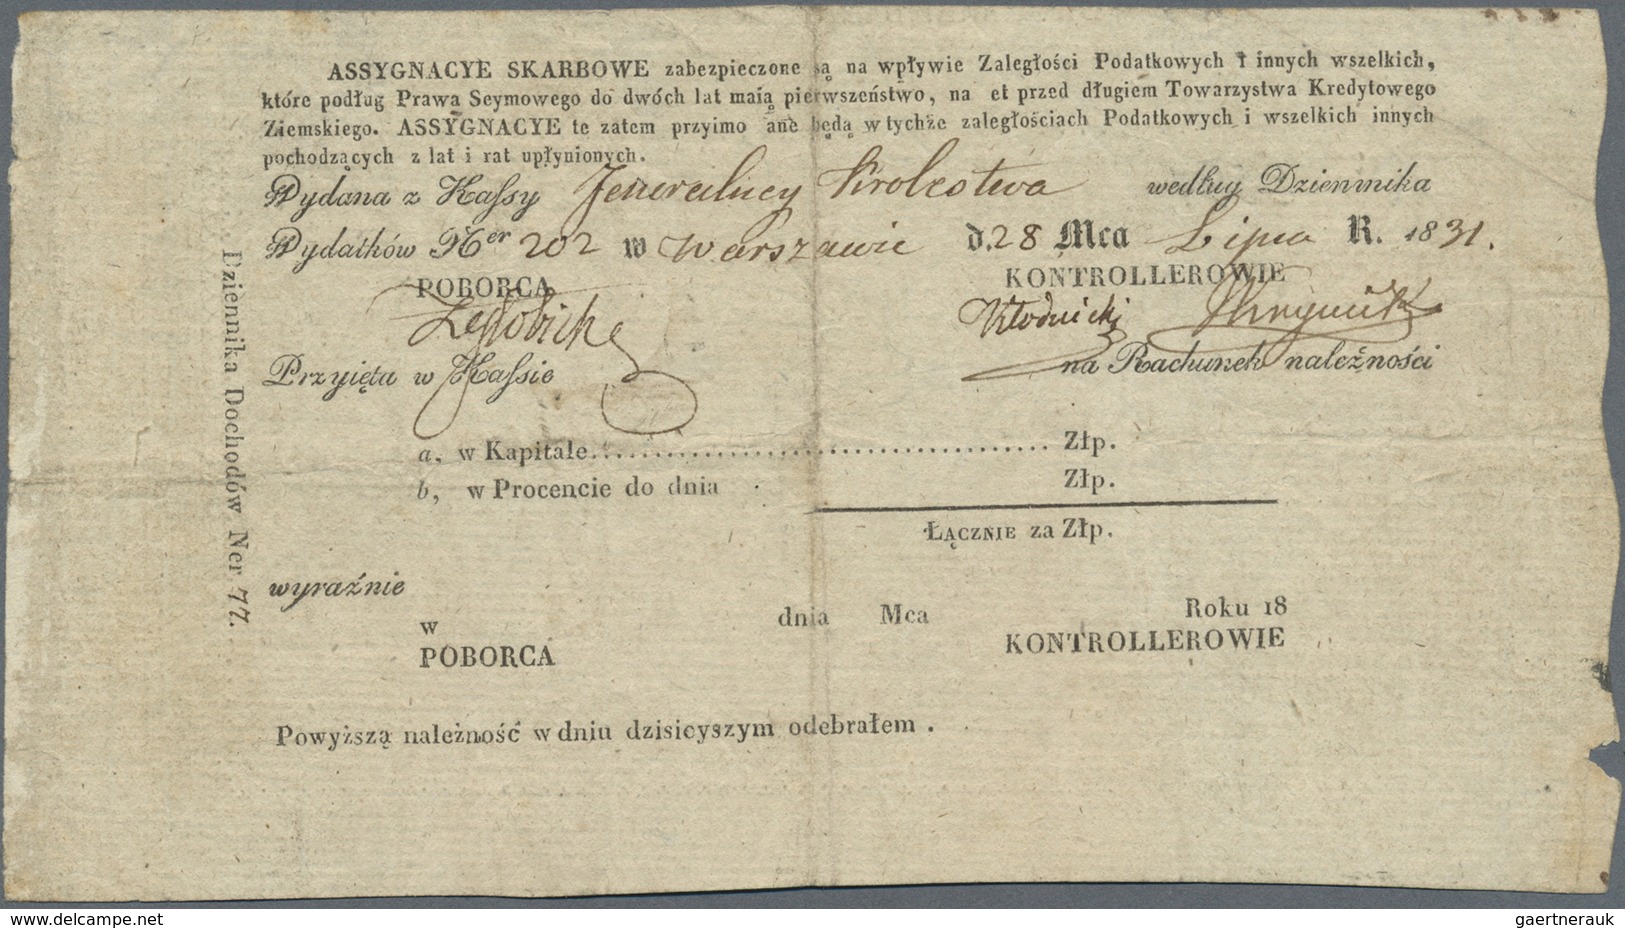 ASSYGNACYE SKARBOWE zabezpieczone są na wpływie Zaległości Podatkowych i innych wszelkich,
które podług Prawa Seymowego do dwóch lat maią pierwszeństwo, na et przed długiem Towarzystwa Kredytowego
Ziemskiego. ASSYGNACYE te zatem przyimo ane będą w tychże zaległościach Podatkowych i wszelkich innych
pochodzących z lat i rat upłynionych.
Wydana z Kassy Jeneralney Krolestwa według Dziennika
Wydatków Ner 202 w Warszawie d. 28 Mca Lipca R. 1831.
POBORCA KONTROLLEROWIE
Kłodnicki
Przyięta w Kassie na Rachunek należności
a, w Kapitale........................................ Złp.
b, w Procencie do dnia Złp.
ŁĄCZNIE za Złp.
wyraźnie
w dnia Mca Roku 18
POBORCA KONTROLLEROWIE
Powyższą należność w dniu dzisieyszym odebrałem .
Dziennika Dochodów Ner 77.
www.delcampe.net
gaertnerauk